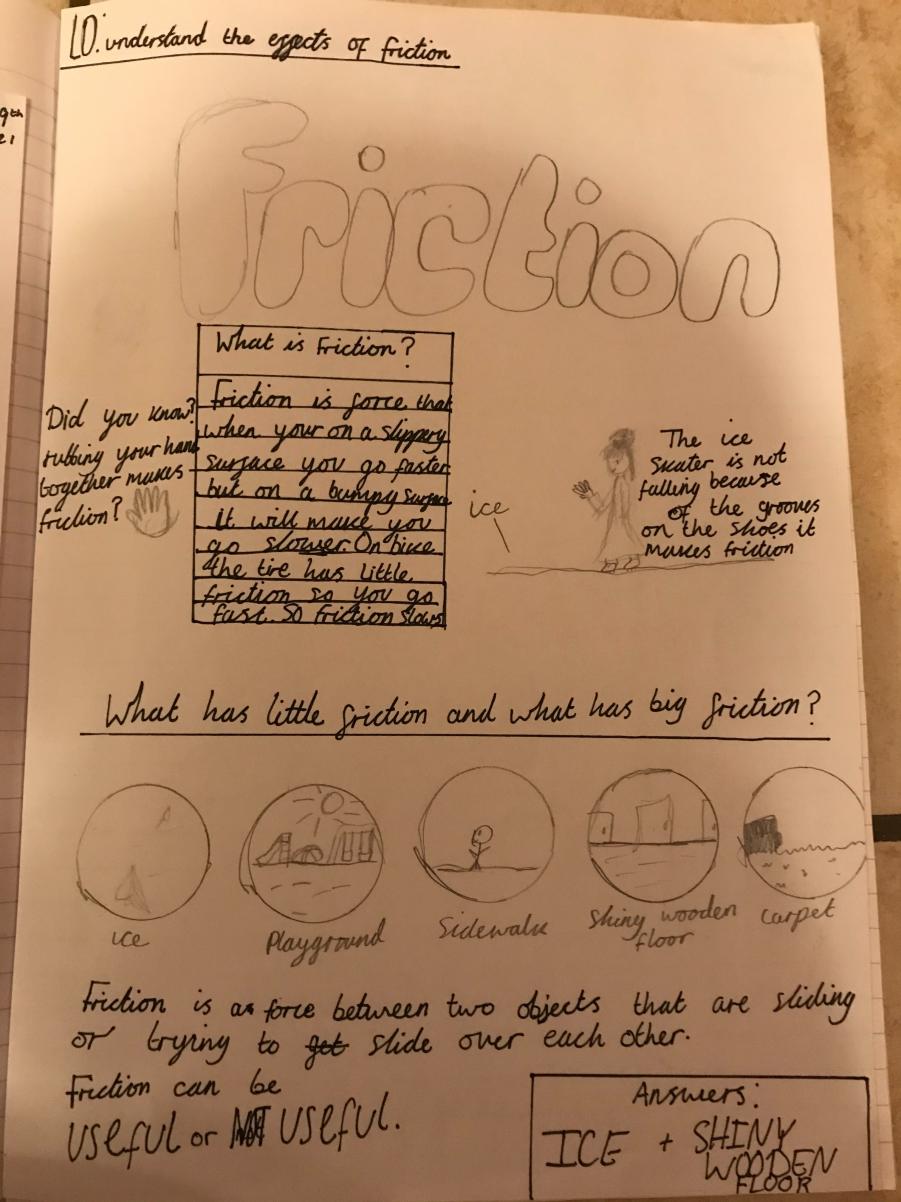 LO: understand the effects of friction
9th
21
Friction
What is Friction?
Friction is force that
when your on a slippery
surface you go faster
but on a bumpy surface
it will make you
go slower. On bike
the tire has little
friction so you go
fast. So friction slows
Did you know?
rubbing your hand
together makes
friction?
ice
The ice
skater is not
falling because
of the grooves
on the shoes it
makes friction
What has little friction and what has big friction?
ice
Playground
Sidewalk
Shiny wooden
floor
carpet
Friction is a force between two objects that are sliding
or trying to get slide over each other.
Friction can be
useful or NOT useful.
Answers:
ICE + SHINY
WOODEN
FLOOR